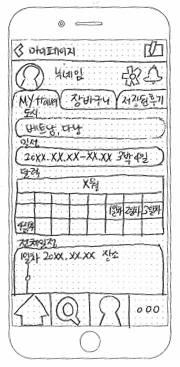 마이페이지
닉네임
MY travel 장바구니 저장된 후기
도시
베트남, 다낭
인원
20XX.XX.XX-XX.XX 3박 4일
달력
X월
1일차 2일차 3일차
4일차
전체일정
1일차 20XX.XX.XX 장소